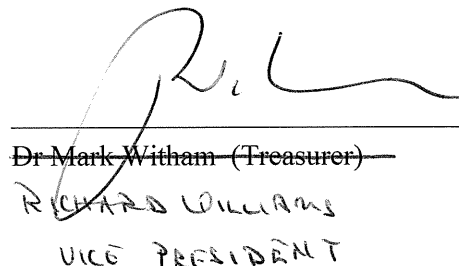 Dr Mark Witham (Treasurer)
RICHARD WILLIAMS
VICE PRESIDENT